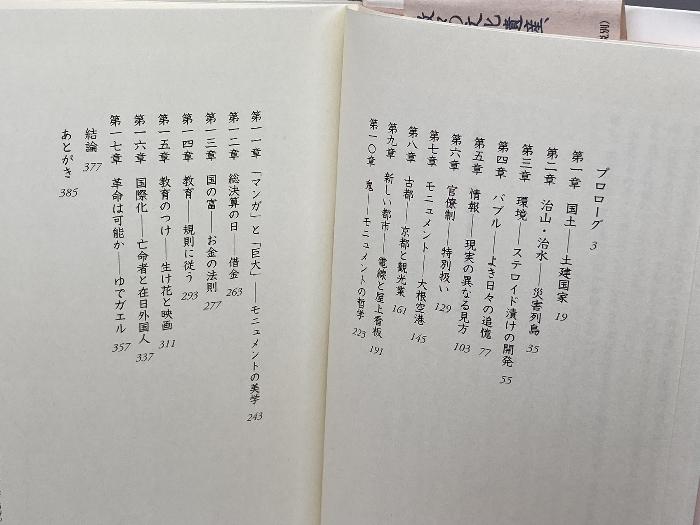 プロローグ 3
第一章 国土——土建国家 19
第二章 治山・治水——災害列島 35
第三章 環境——ステロイド漬けの開発 55
第四章 バブル——よき日々の追憶 77
第五章 情報——現実の異なる見方 103
第六章 官僚制——特別扱い 129
第七章 モニュメント——大根空港 145
第八章 古都——京都と観光業 161
第九章 新しい都市——電線と屋上看板 191
第一〇章 鬼——モニュメントの哲学 223
第一一章 「マンガ」と「巨大」——モニュメントの美学 243
第一二章 総決算の日——借金 263
第一三章 国の富——お金の法則 277
第一四章 教育——規則に従う 293
第一五章 教育のつけ——生け花と映画 311
第一六章 国際化——亡命者と在日外国人 337
第一七章 革命は可能か——ゆでガエル 357
結論 377
あとがき 385